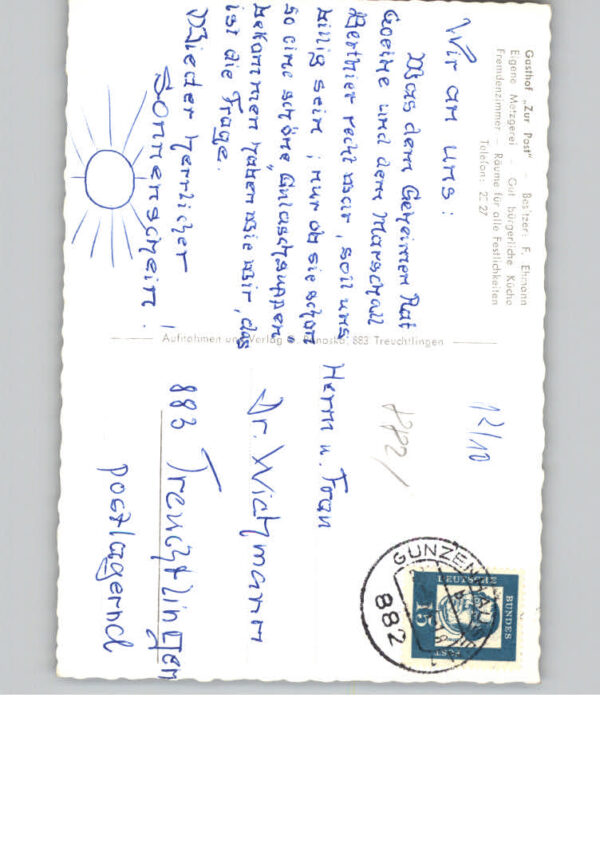 Gasthof „Zur Post" – Besitzer: F. Ehmann
Eigene Metzgerei – Gut bürgerliche Küche
Fremdenzimmer – Räume für alle Festlichkeiten
Telefon: 2227
Wir an uns:
Was dem Geheimen Rat
Goethe und dem Marschall
Berthier recht war, soll uns
billig sein; nur ob sie schon
so eine schöne „Gulaschsuppen"
bekommen haben wie wir, das
ist die Frage.
Wieder herrlicher
Sonnenschein!
Aufnahmen und Verlag 883 Treuchtlingen
12/10
Herrn u. Frau
Dr. Wichmann
883 Treuchtlingen
postlagernd
GUNZENHAUSEN
882
DEUTSCHE
BUNDES
POST
15